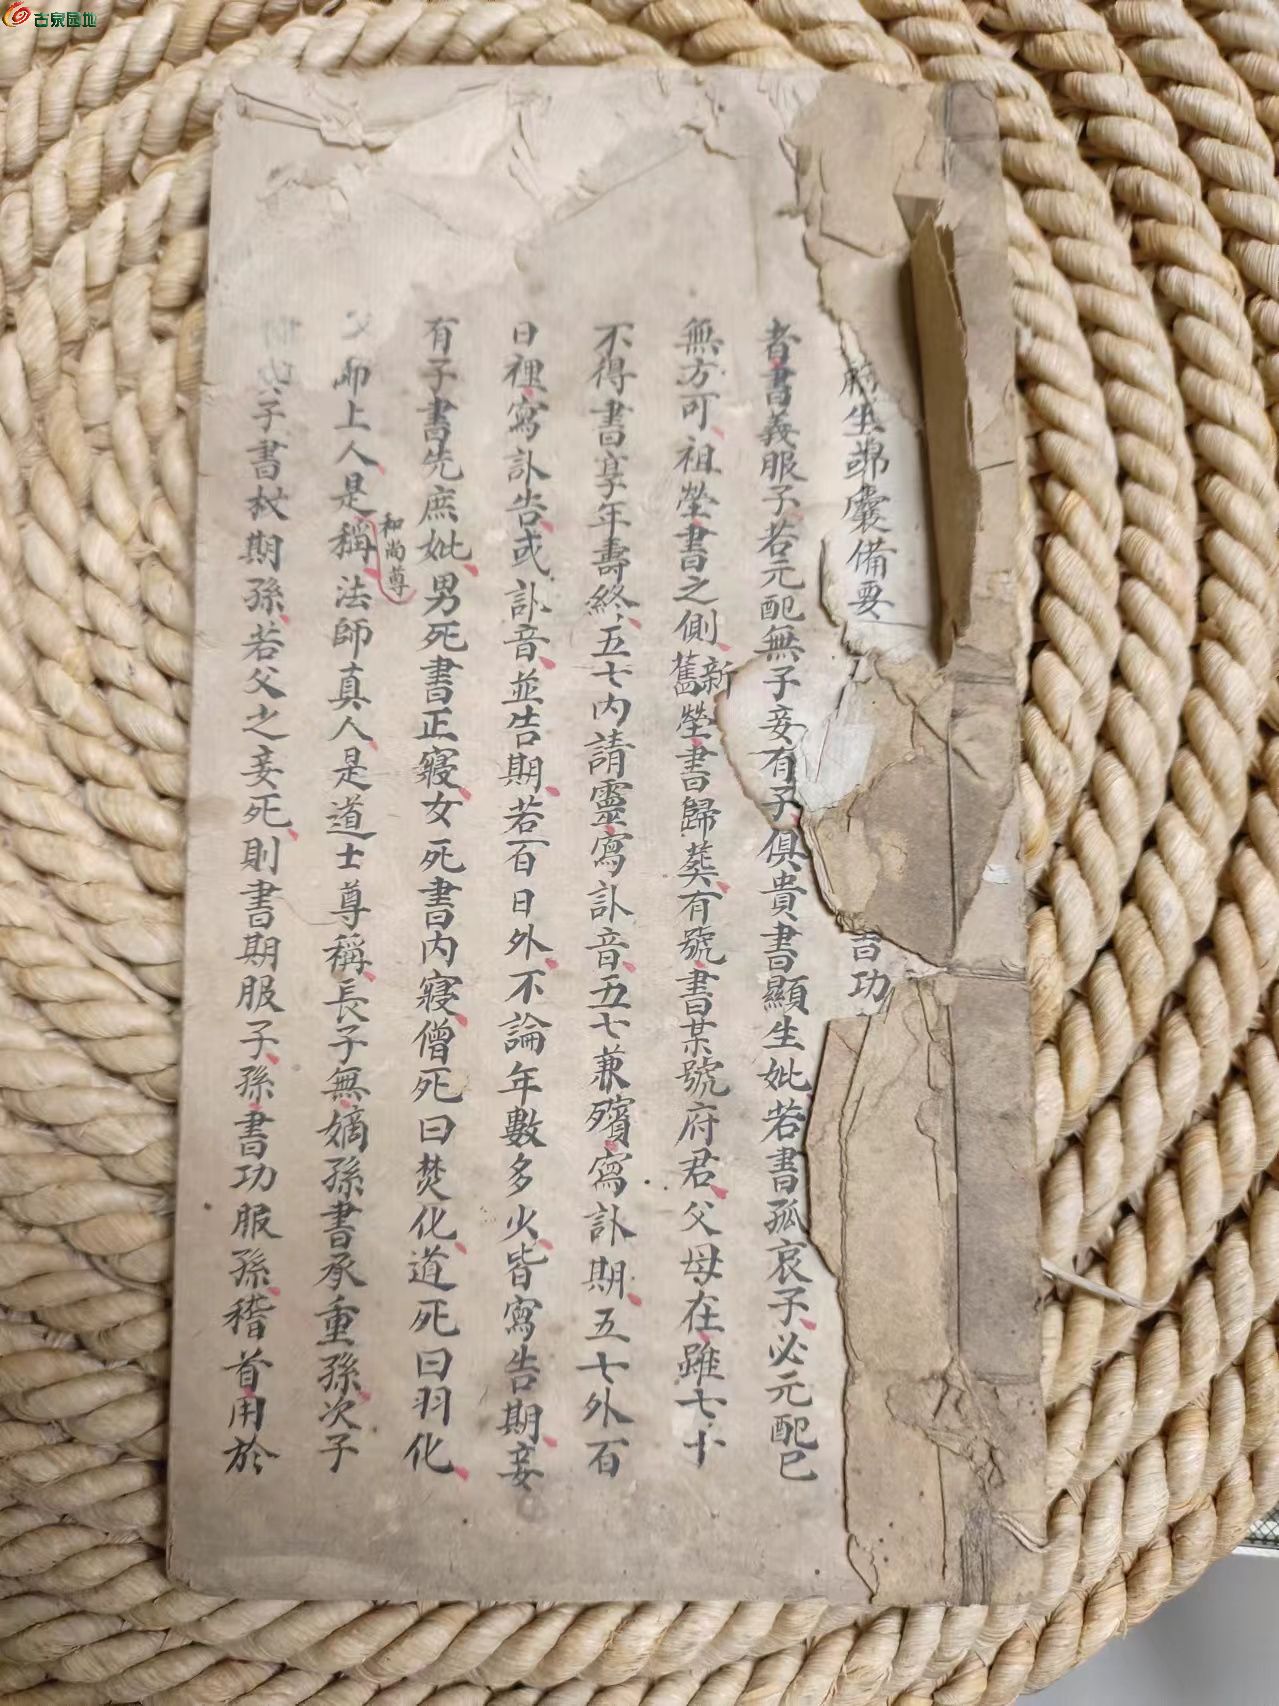 古泉园地
生錦囊備要
言功
者書義服子若元配無子妾有子俱貴書顯生妣若書孤哀子必元配已
無方可祖塋書之側新舊塋書歸葬有號書某號府君父母在雖七十
不得書享年壽終五七內請靈寫訃音五七兼殯寫訃期五七外百
日裡寫訃告或訃音並告期若百日外不論年數多火皆寫告期妾
有子書先庶妣男死書正寢女死書內寢僧死曰焚化道死曰羽化
父師上人是稱和尚尊法師真人是道士尊稱長子無嫡孫書承重孫次子
子書杖期孫若父之妾死則書期服子孫書功服孫稽首用於